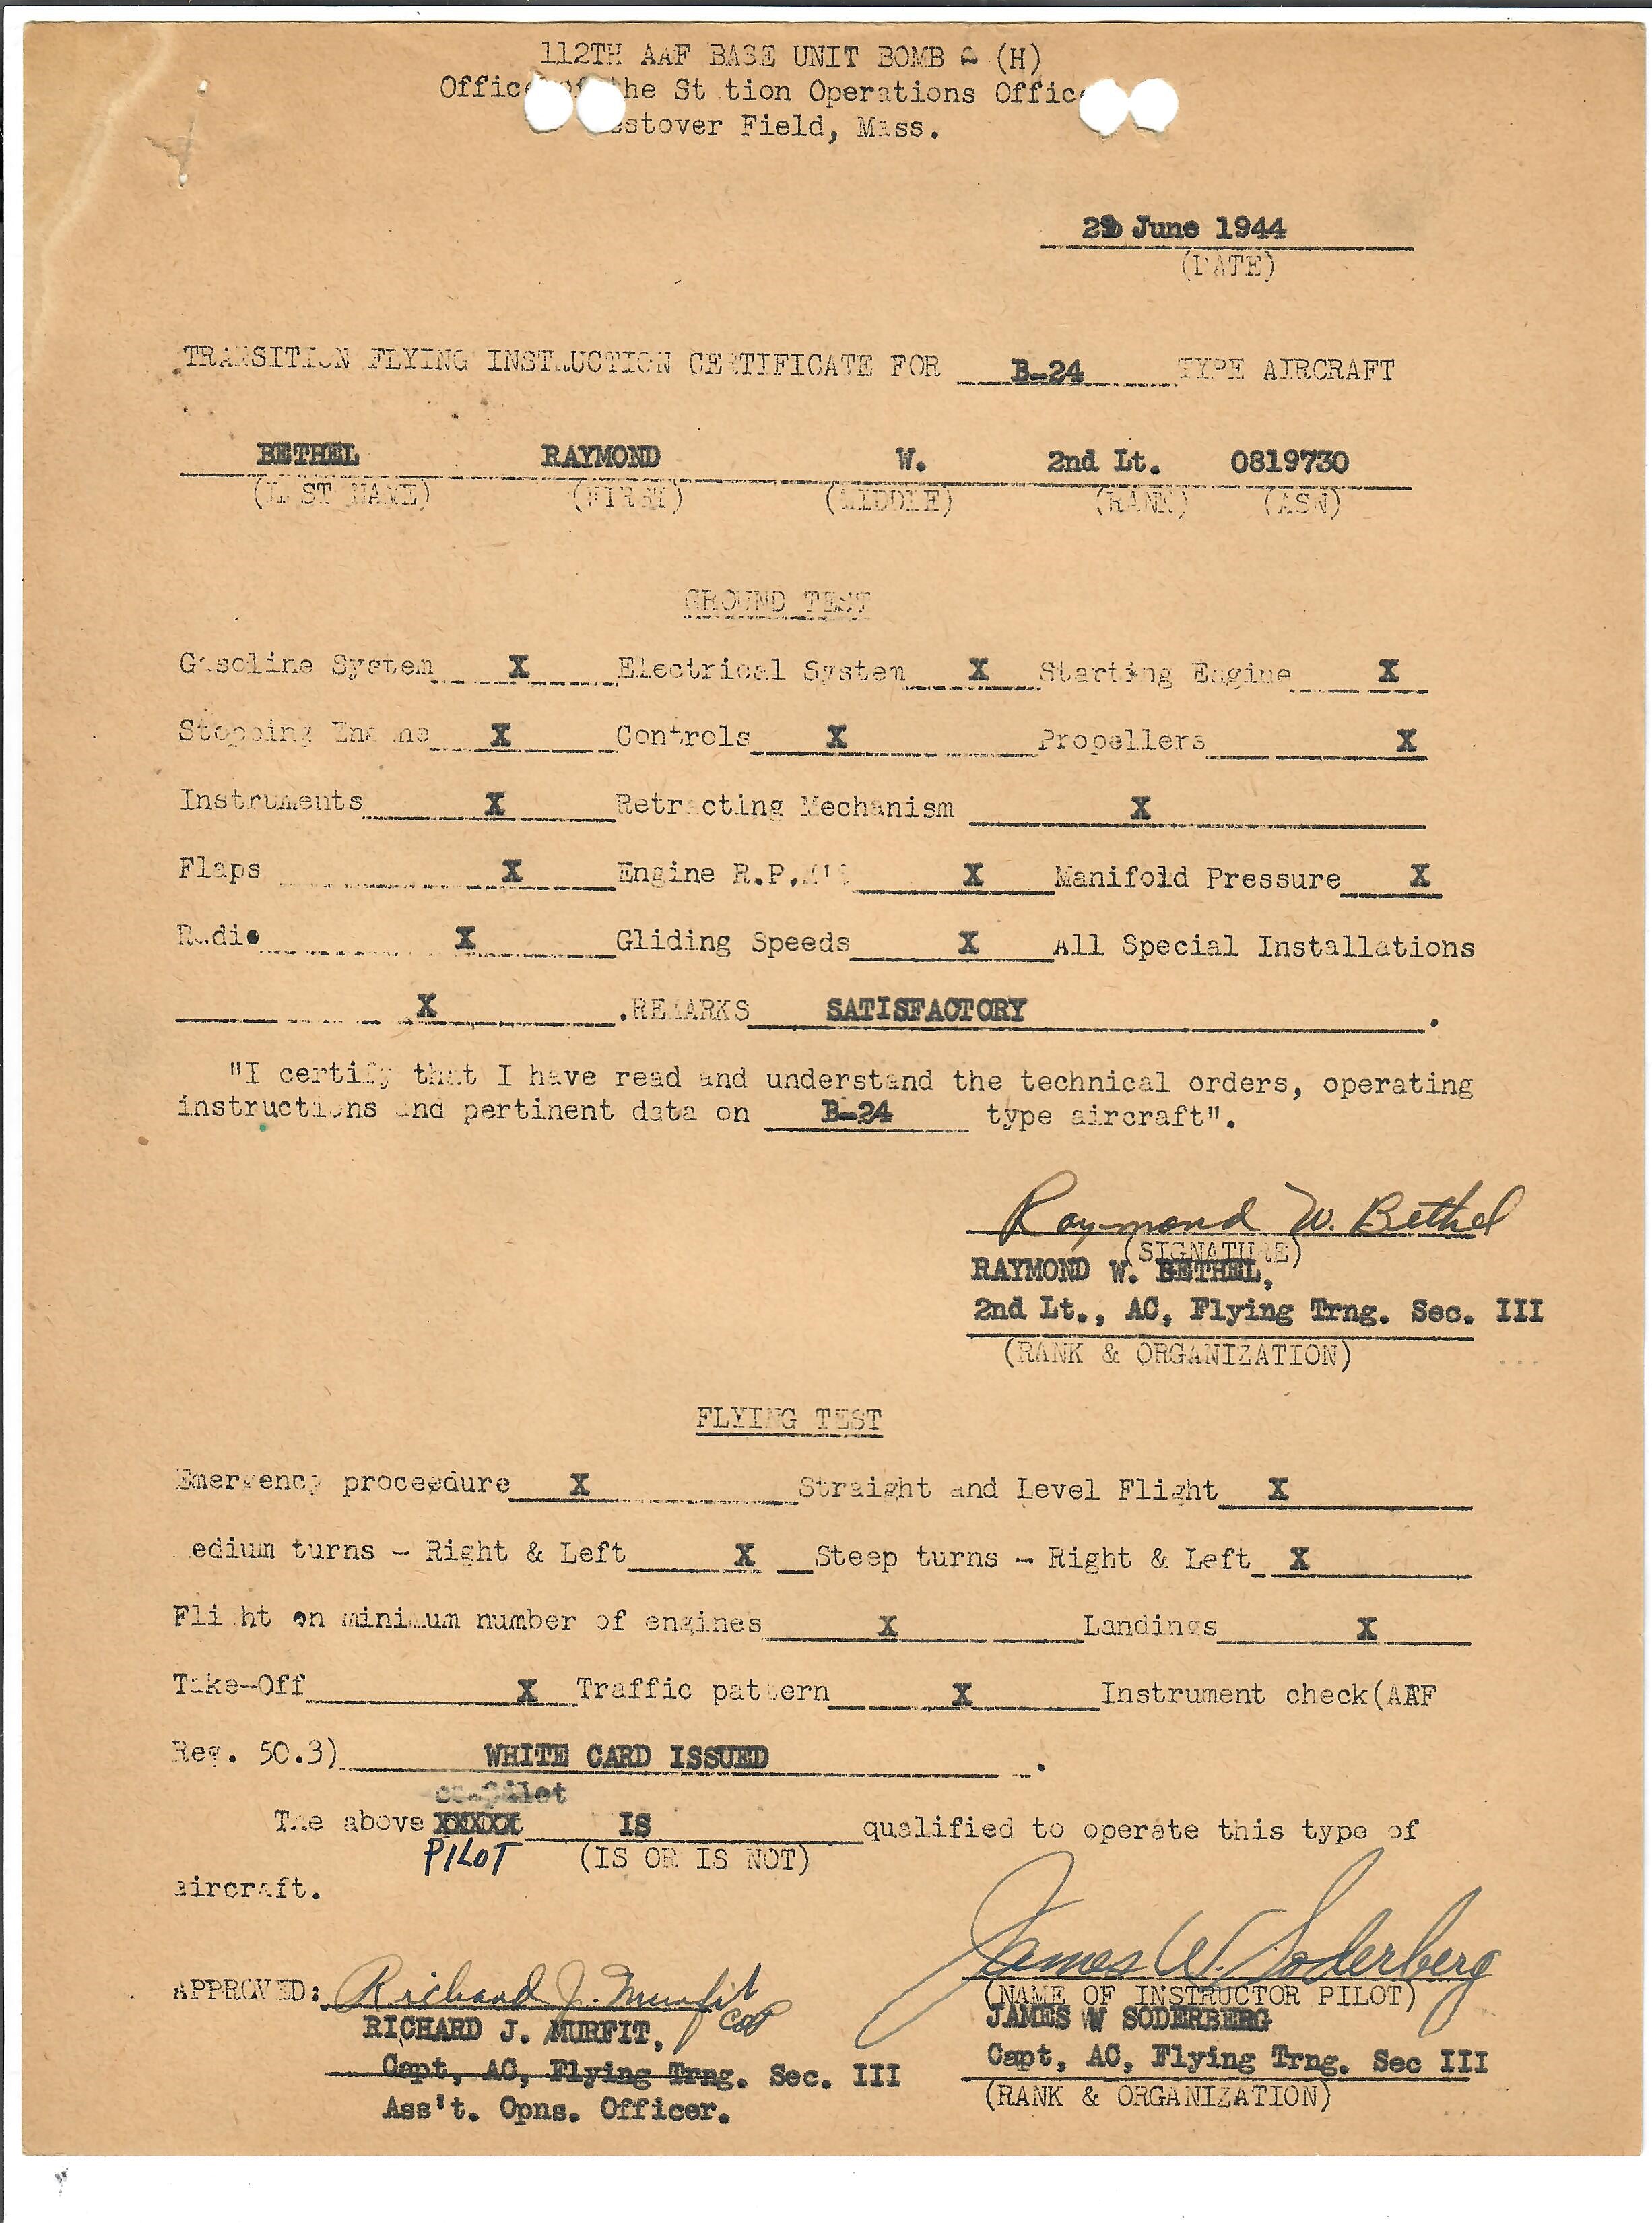 112TH AAF BASE UNIT BOMB (H)
Office of the Station Operations Office
Westover Field, Mass.
June 1944
(DATE)
TRANSITION FLYING INSTRUCTION CERTIFICATE FOR B-24 TYPE AIRCRAFT
BETHEL RAYMOND W. 2nd Lt. 0819730
(LAST NAME) (FIRST) (MIDDLE) (RANK) (ASN)
GROUND TEST
Gasoline System X Electrical System X Starting Engine X
Stopping Engine X Controls X Propellers X
Instruments X Retracting Mechanism X
Flaps X Engine R.P.M's X Manifold Pressure X
Radio X Gliding Speeds X All Special Installations
X .REMARKS SATISFACTORY .
"I certify that I have read and understand the technical orders, operating
instructions and pertinent data on B-24 type aircraft".
Raymond W. Bethel
(SIGNATURE)
RAYMOND W. BETHEL,
2nd Lt., AC, Flying Trng. Sec. III
(RANK & ORGANIZATION)
FLYING TEST
Emergency proceedure X Straight and Level Flight X
Medium turns - Right & Left X Steep turns - Right & Left X
Flight on minimum number of engines X Landings X
Take-Off X Traffic pattern X Instrument check(AAF
Reg. 50.3) WHITE CARD ISSUED .
co-pilot
The above XXXXX IS qualified to operate this type of
PILOT (IS OR IS NOT)
aircraft.
James W. Soderberg
APPROVED: Richard J. Murfit (NAME OF INSTRUCTOR PILOT)
RICHARD J. MURFIT, JAMES W SODERBERG
Capt, AC, Flying Trng. Sec. III Capt, AC, Flying Trng. Sec III
Ass't. Opns. Officer. (RANK & ORGANIZATION)